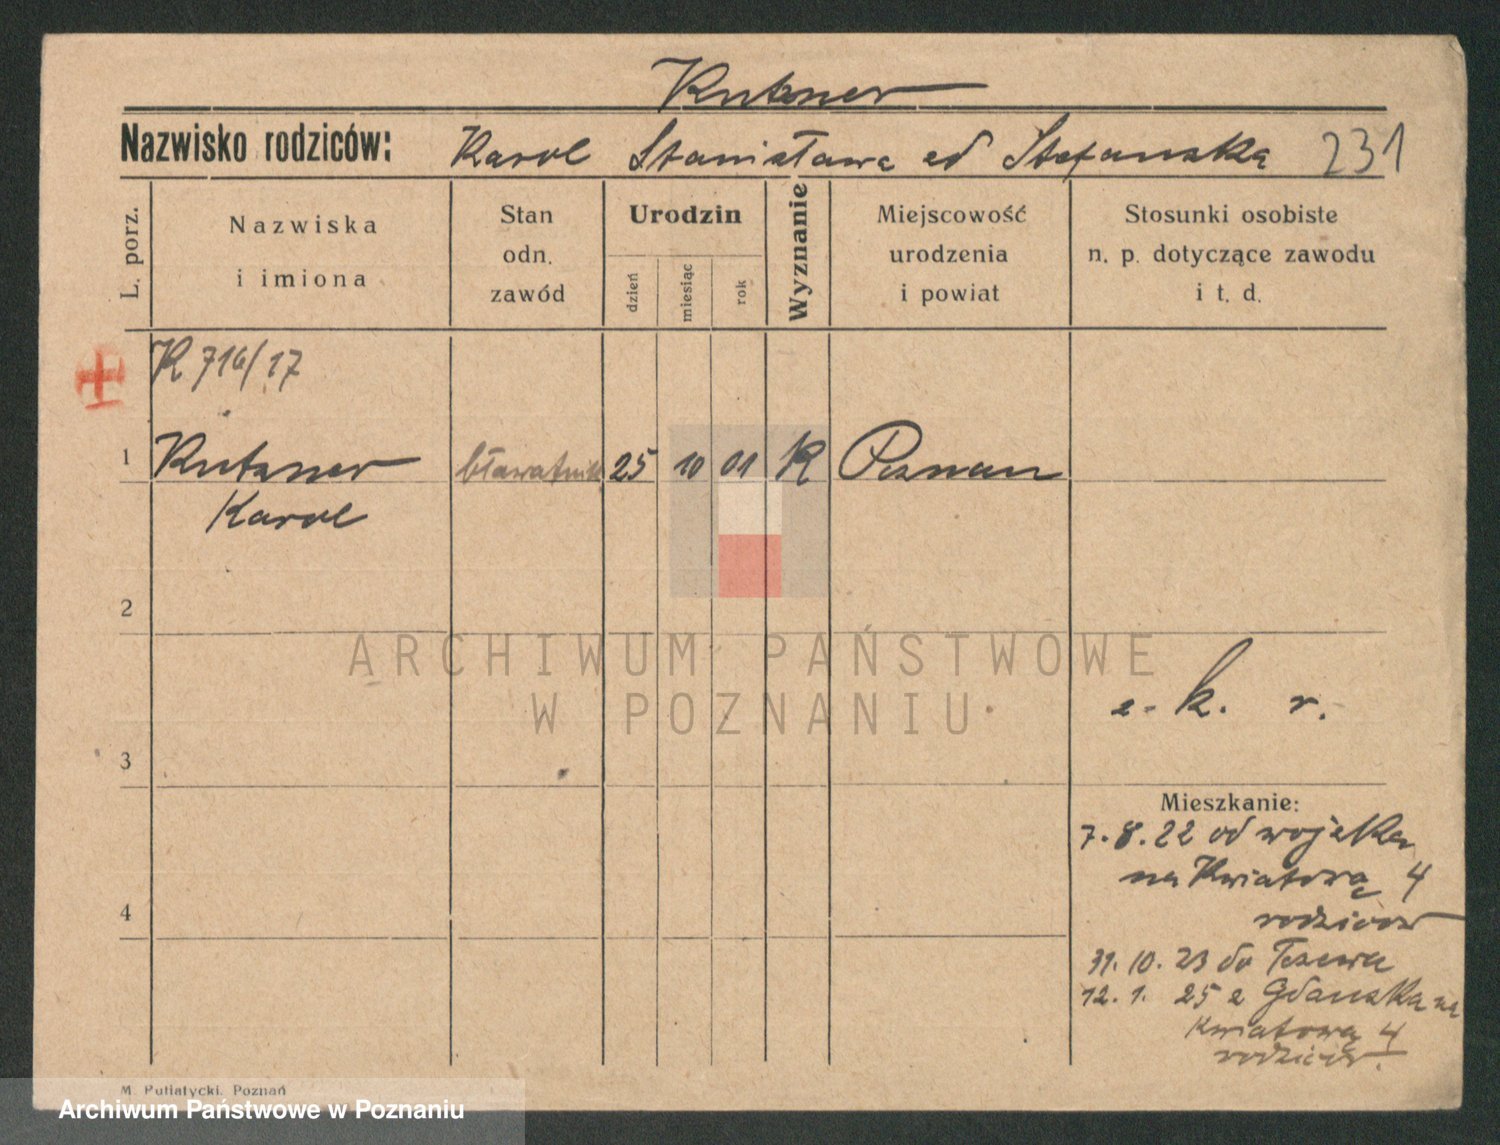 Kutzner
Nazwisko rodziców: Karol Stanisława ed Stefańska 231
L. porz.
Nazwiska i imiona
Stan odn. zawód
Urodzin
dzień
miesiąc
rok
Wyznanie
Miejscowość urodzenia i powiat
Stosunki osobiste n. p. dotyczące zawodu i t. d.
K 716/17
1 Kutzner bławatnik 25 10 01 K Poznan
Karol
2
ARCHIWUM PAŃSTWOWE
W POZNANIU
k. r.
3
Mieszkanie:
7. 8. 22 od wojska
na Kwiatową 4
rodziców
4
31. 10. 23 do Tczewa
12. 1. 25 z Gdańska na
Kwiatową 4
rodziców.
M. Putiatycki, Poznań
Archiwum Państwowe w Poznaniu